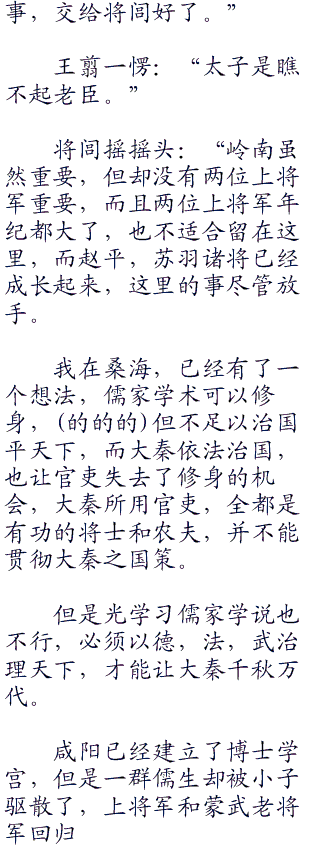 事，交给将闾好了。”
王翦一愣：“太子是瞧
不起老臣。”
将闾摇摇头：“岭南虽
然重要，但却没有两位上将
军重要，而且两位上将军年
纪都大了，也不适合留在这
里，而赵平，苏羽诸将已经
成长起来，这里的事尽管放
手。
我在桑海，已经有了一
个想法，儒家学术可以修
身，(的的的)但不足以治国
平天下，而大秦依法治国，
也让官吏失去了修身的机
会，大秦所用官吏，全都是
有功的将士和农夫，并不能
贯彻大秦之国策。
但是光学习儒家学说也
不行，必须以德，法，武治
理天下，才能让大秦千秋万
代。
咸阳已经建立了博士学
宫，但是一群儒生却被小子
驱散了，上将军和蒙武老将
军回归